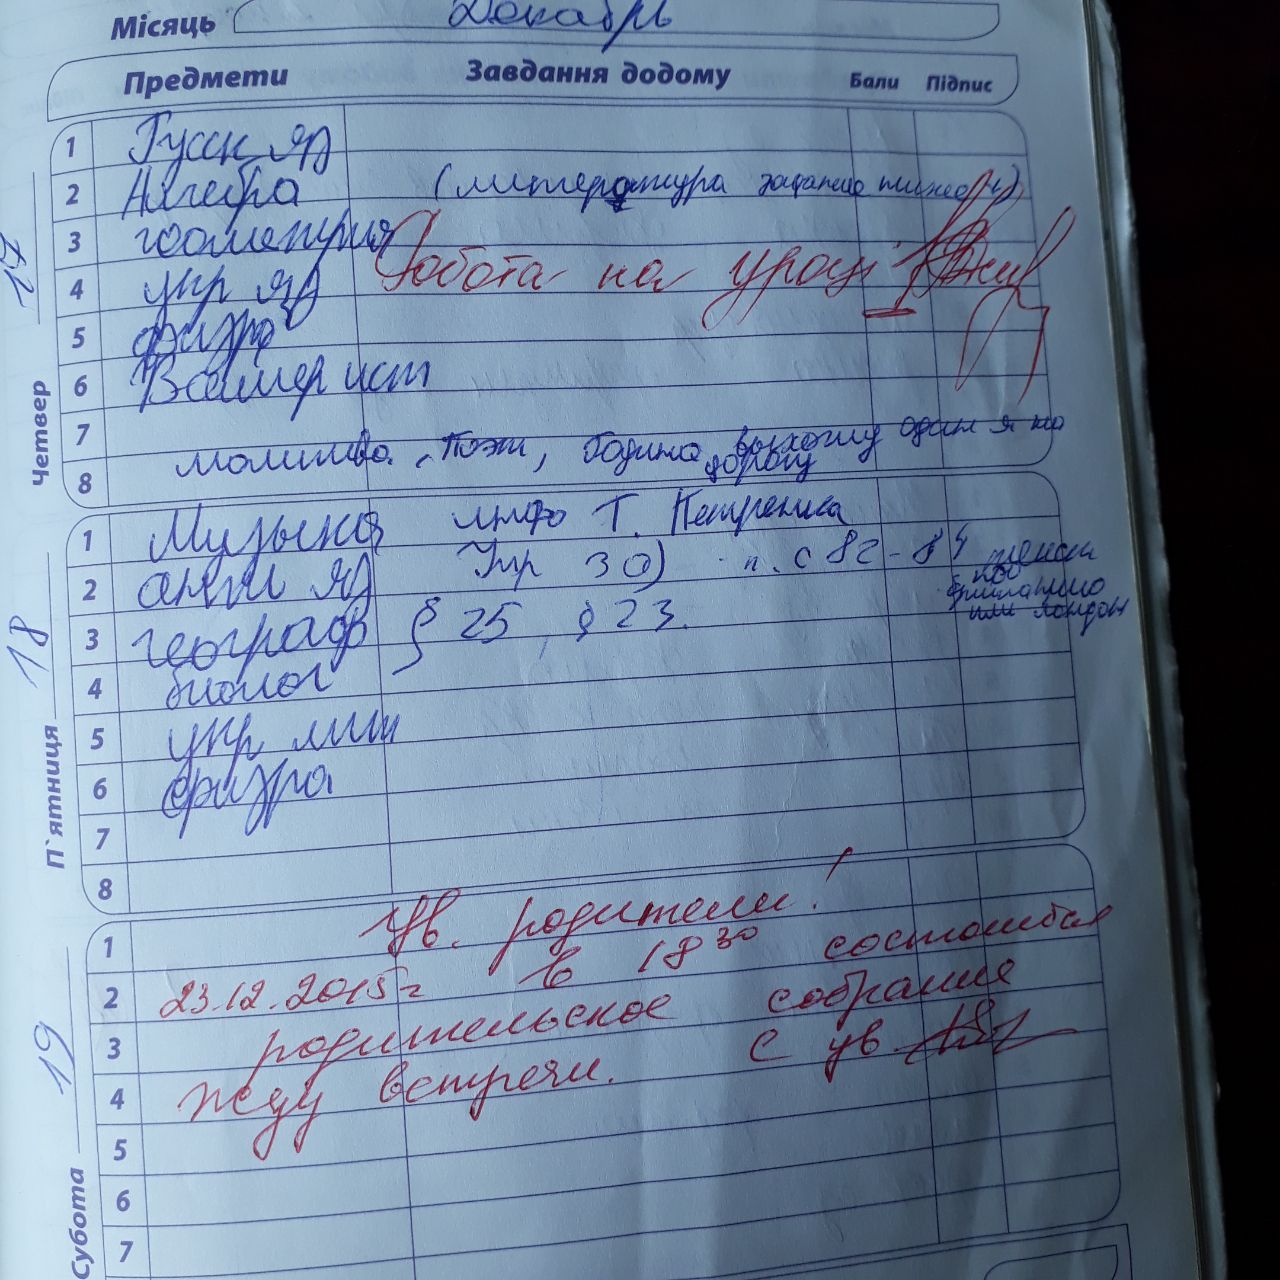 Місяць Декабрь
Предмети Завдання додому Бали Підпис
Четвер 17
1 Русск яз
2 Алгебра (литература задание ниже)
3 геометрия
4 укр яз Робота на уроці
5 физра
6 Всемир ист
7
8 молитва, Поэт, Родина, выхожу один я на
дорогу
П`ятниця 18
1 Музыка инфо Т. Петренка
2 англ яз Упр 30) п. с 82 - 84
3 географ § 25, § 23.
4 биолог
5 укр лит
6 физра
7
8
Субота 19
1 Ув. родители!
2 23.12.2015г в 18 30 состоится
3 родительское собрание
4 жду встречи. с ув.
5
6
7